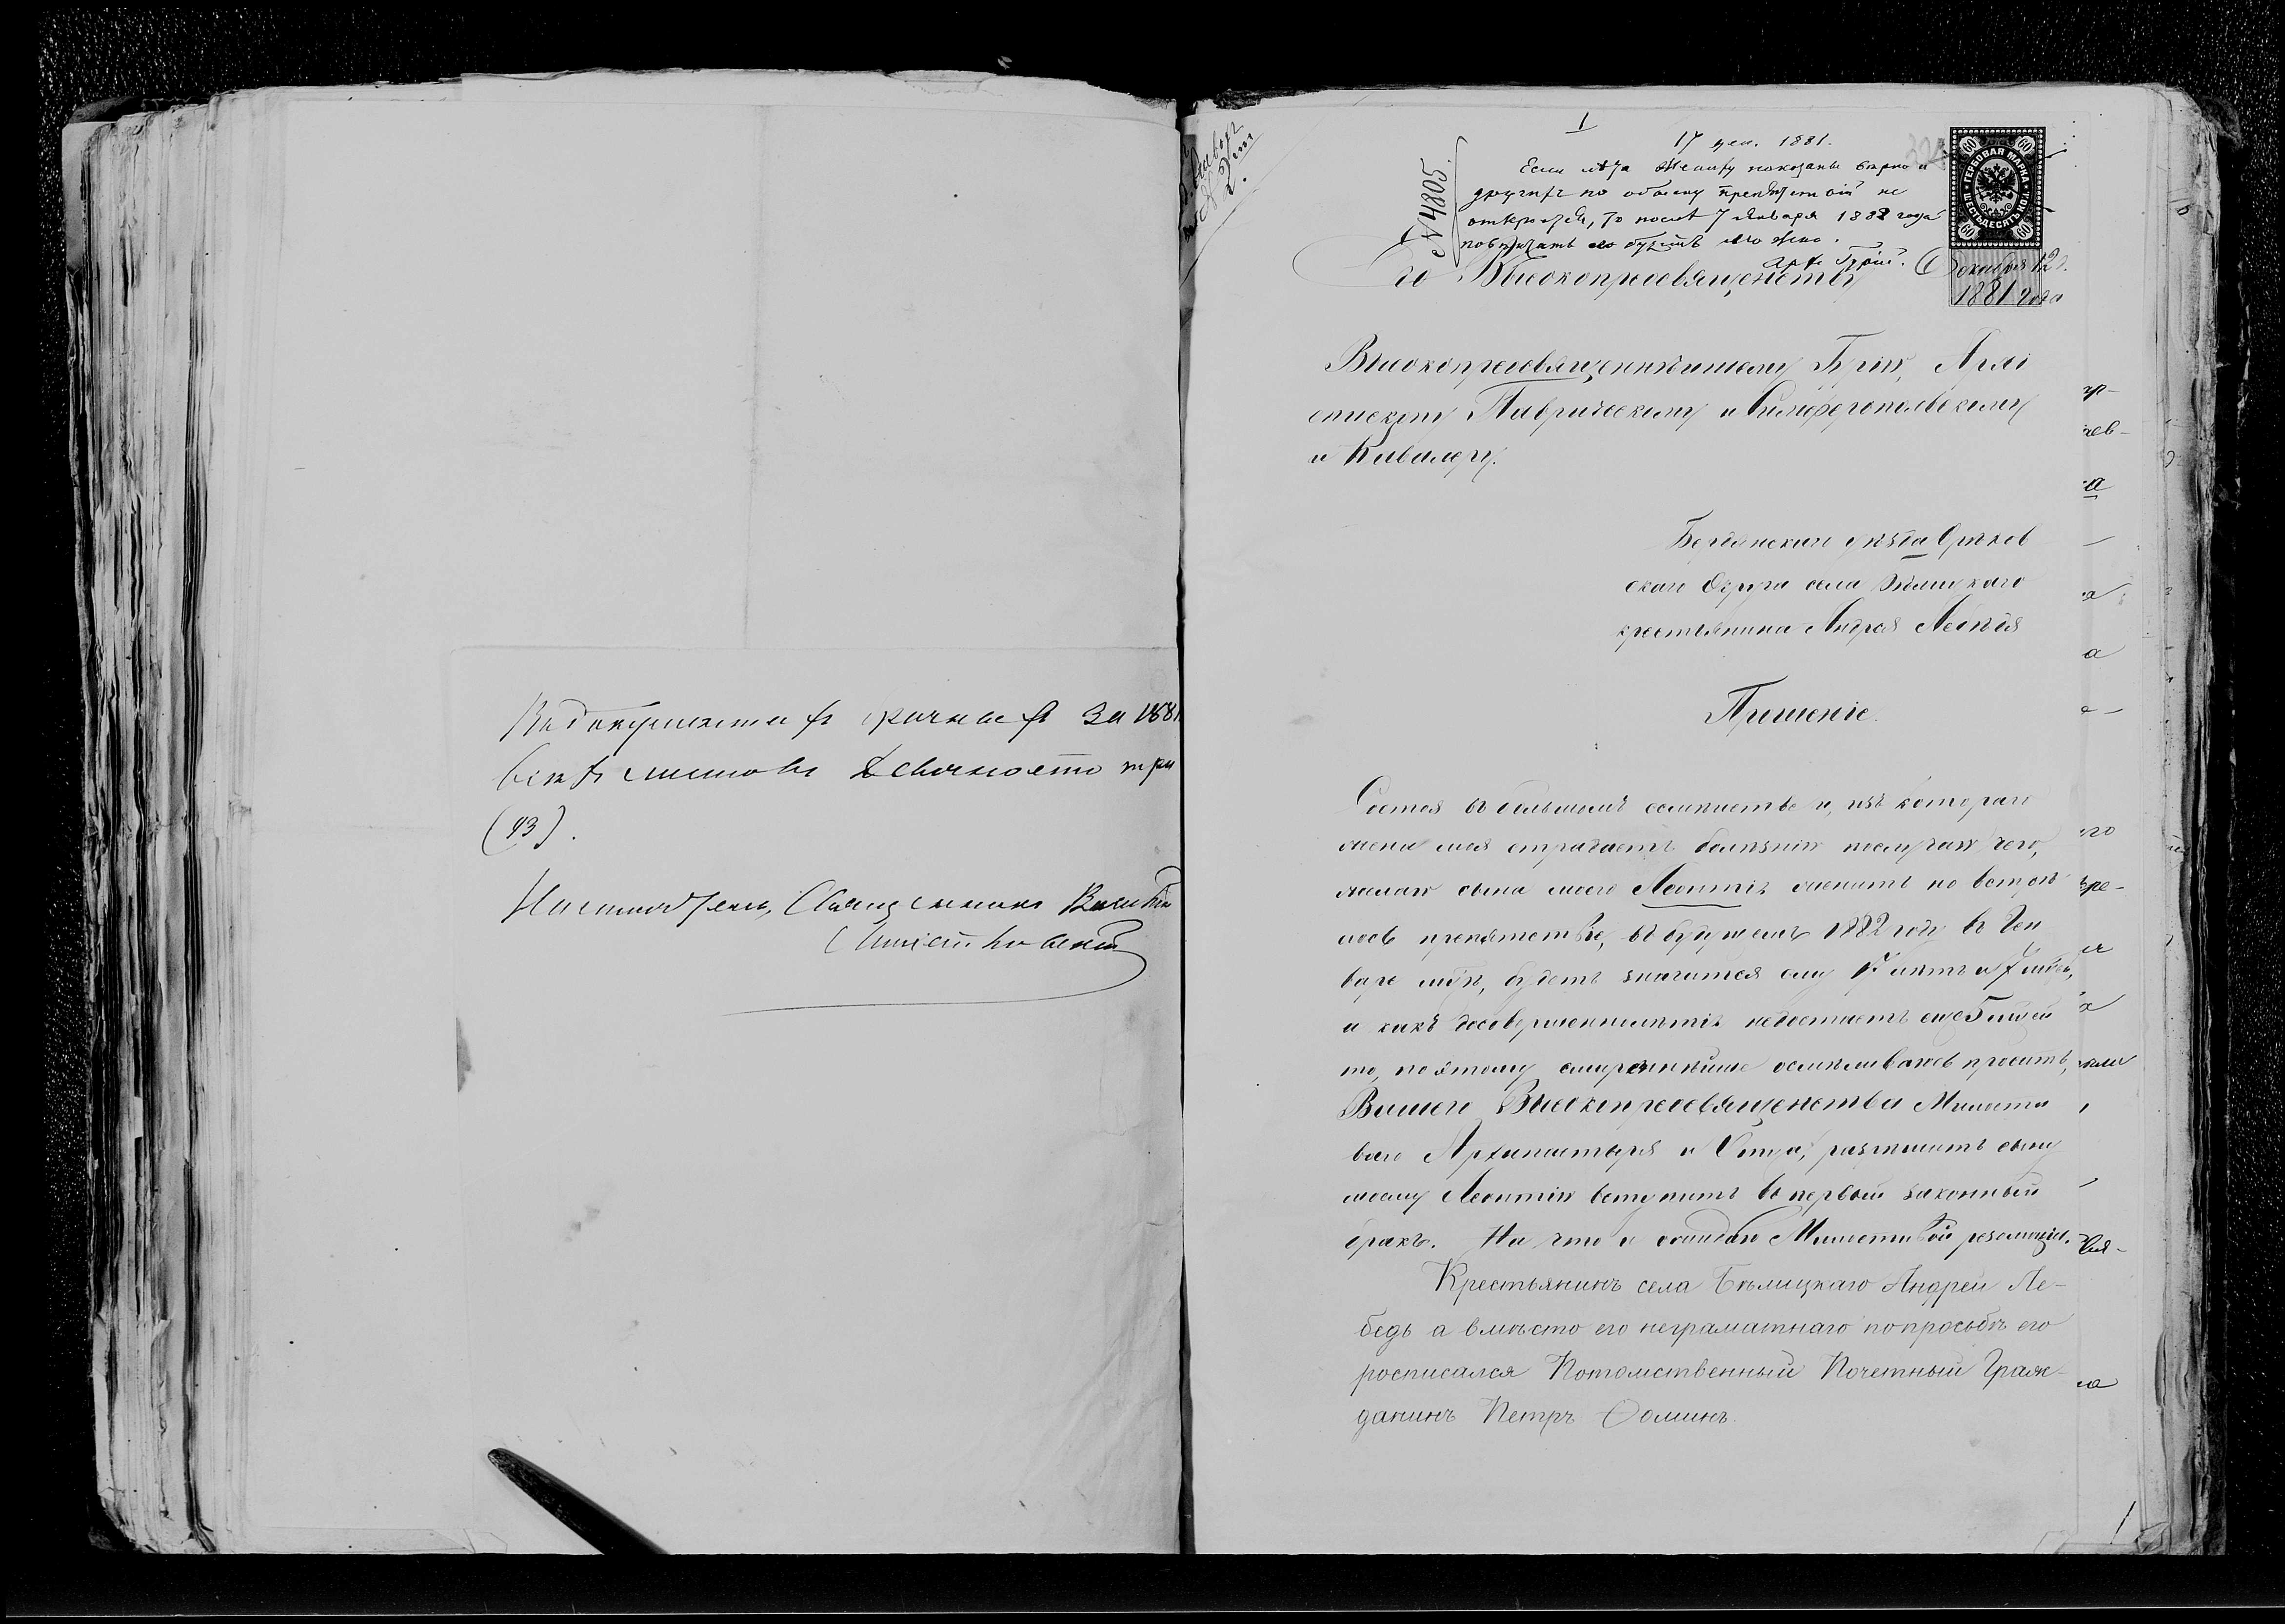 Въ документахъ брачныхъ за 1881
всѣхъ листовъ девяносто три
(93).
Настоятель, Священникъ
1
17 дек. 1881.
Если лѣта жениху показаны вѣрно и
другихъ по обыску препятствій не
откроется, то послѣ 7 Января 1882 года
повѣнчать его будетъ можно.
Арх. Гурій.
№ 4805.
ГЕРБОВАЯ МАРКА
ШЕСТЬДЕСЯТЪ КОП.
60 60 60 60
Декабря 12 д.
1881 года
Его Высокопреосвященству
Высокопреосвященнѣйшему Гурію, Архі
епископу Таврическому и Симферопольскому
и Кавалеру.
Бердянскаго уѣзда Орѣхов
скаго Округа села Бѣлицкаго
крестьянина Андрея Лебедя
Прошеніе.
Состоя въ большомъ семействе и, изъ котораго
жена моя страдаетъ болѣзнію послучаю чего,
желаю сына моего Леонтія женить но встрѣ
лось препятствіе, въ будущемъ 1882 году въ Ген
варе м-цѣ, будетъ значится ему 17 лѣтъ и 7 мѣсяц,
и какъ досовершеннолѣтія недостаетъ еще 5 мѣсяц
то, поэтому смиреннѣйше осмѣливаюсь просить,
Вашего Высокопреосвященства Милости
ваго Архипастыря и Отца, разрѣшить сыну
моему Леонтію вступить въ первый законный
бракъ. На что и ожидаю Милостивой резолюціи.
Крестьянинъ села Бѣлицкаго Андрей Ле-
бедь а вмѣсто его неграматнаго попросьбѣ его
росписался Потомственный Почетный Граж-
данинъ Петръ Ѳоминъ.
1